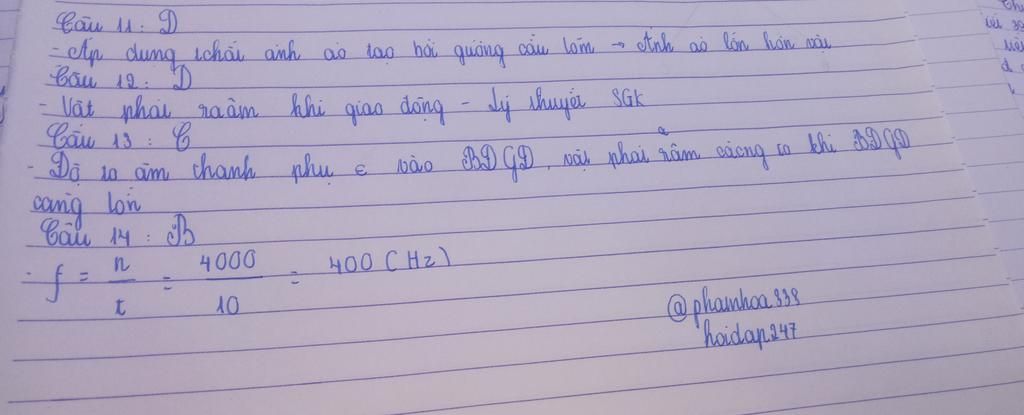 Câu 11: D
- Áp dụng tchất ảnh ảo tạo bởi gương cầu lõm → Ảnh ảo lớn hơn vật
Câu 12: D
- Vật phát ra âm khi giao động - Lý thuyết SGK
Câu 13: C
- Độ to âm thanh phụ ∈ vào BĐGĐ, vật phát râm càcng to khi BĐGĐ
a
càng lớn
Câu 14: B
- f = n/t = 4000/10 = 400 (Hz)
@phamhoa338
hoidap247